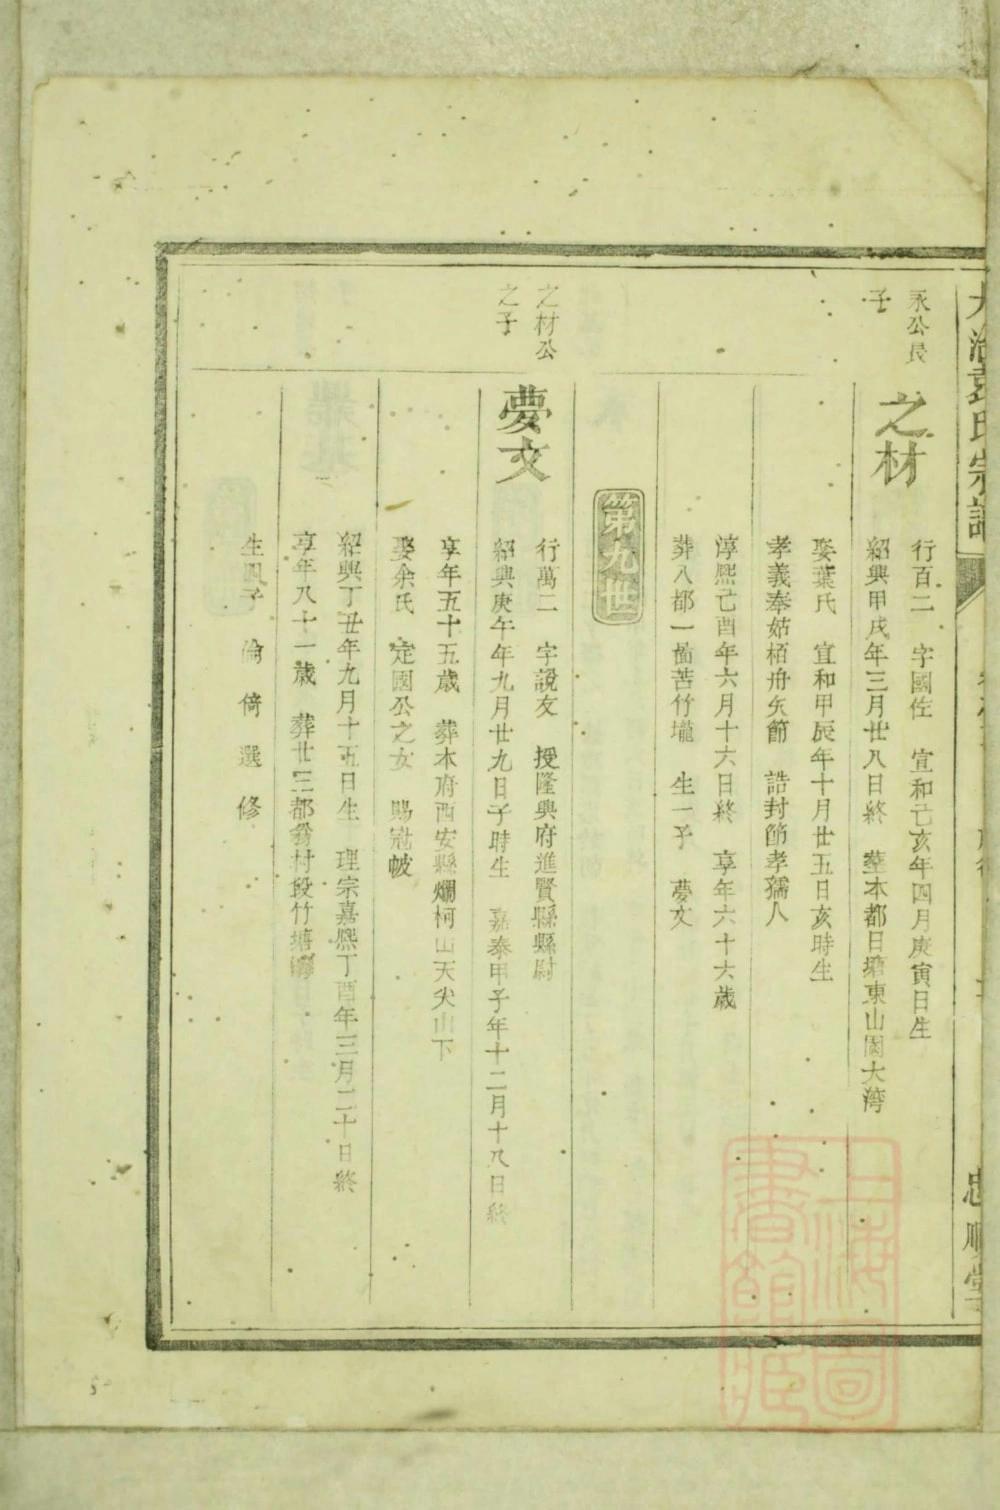 氏宗譜
忠順堂
永公長
子
之材
行百二 字國佐 宣和己亥年四月庚寅日生
紹興甲戌年三月廿八日終 塟本都日塘東山園大湾
娶葉氏 宣和甲辰年十月廿五日亥時生
孝義奉姑栢舟矢節 誥封節孝孺人
淳熙己酉年六月十六日終 享年六十六歲
葬八都一啚苦竹壠 生一子 夢文
第九世
之材公
之子
夢文
行萬二 字說友 授隆興府進賢縣縣尉
紹興庚午年九月廿九日子時生 嘉泰甲子年十二月十八日終
享年五十五歲 葬本府西安縣爛柯山天尖山下
娶余氏 定國公之女 賜冠帔
紹興丁丑年九月十五日生 理宗嘉熙丁酉年三月二十日終
享年八十一歲 葬廿三都 村段竹塘
生四子 倫 倚 選 修
上海圖
書館藏